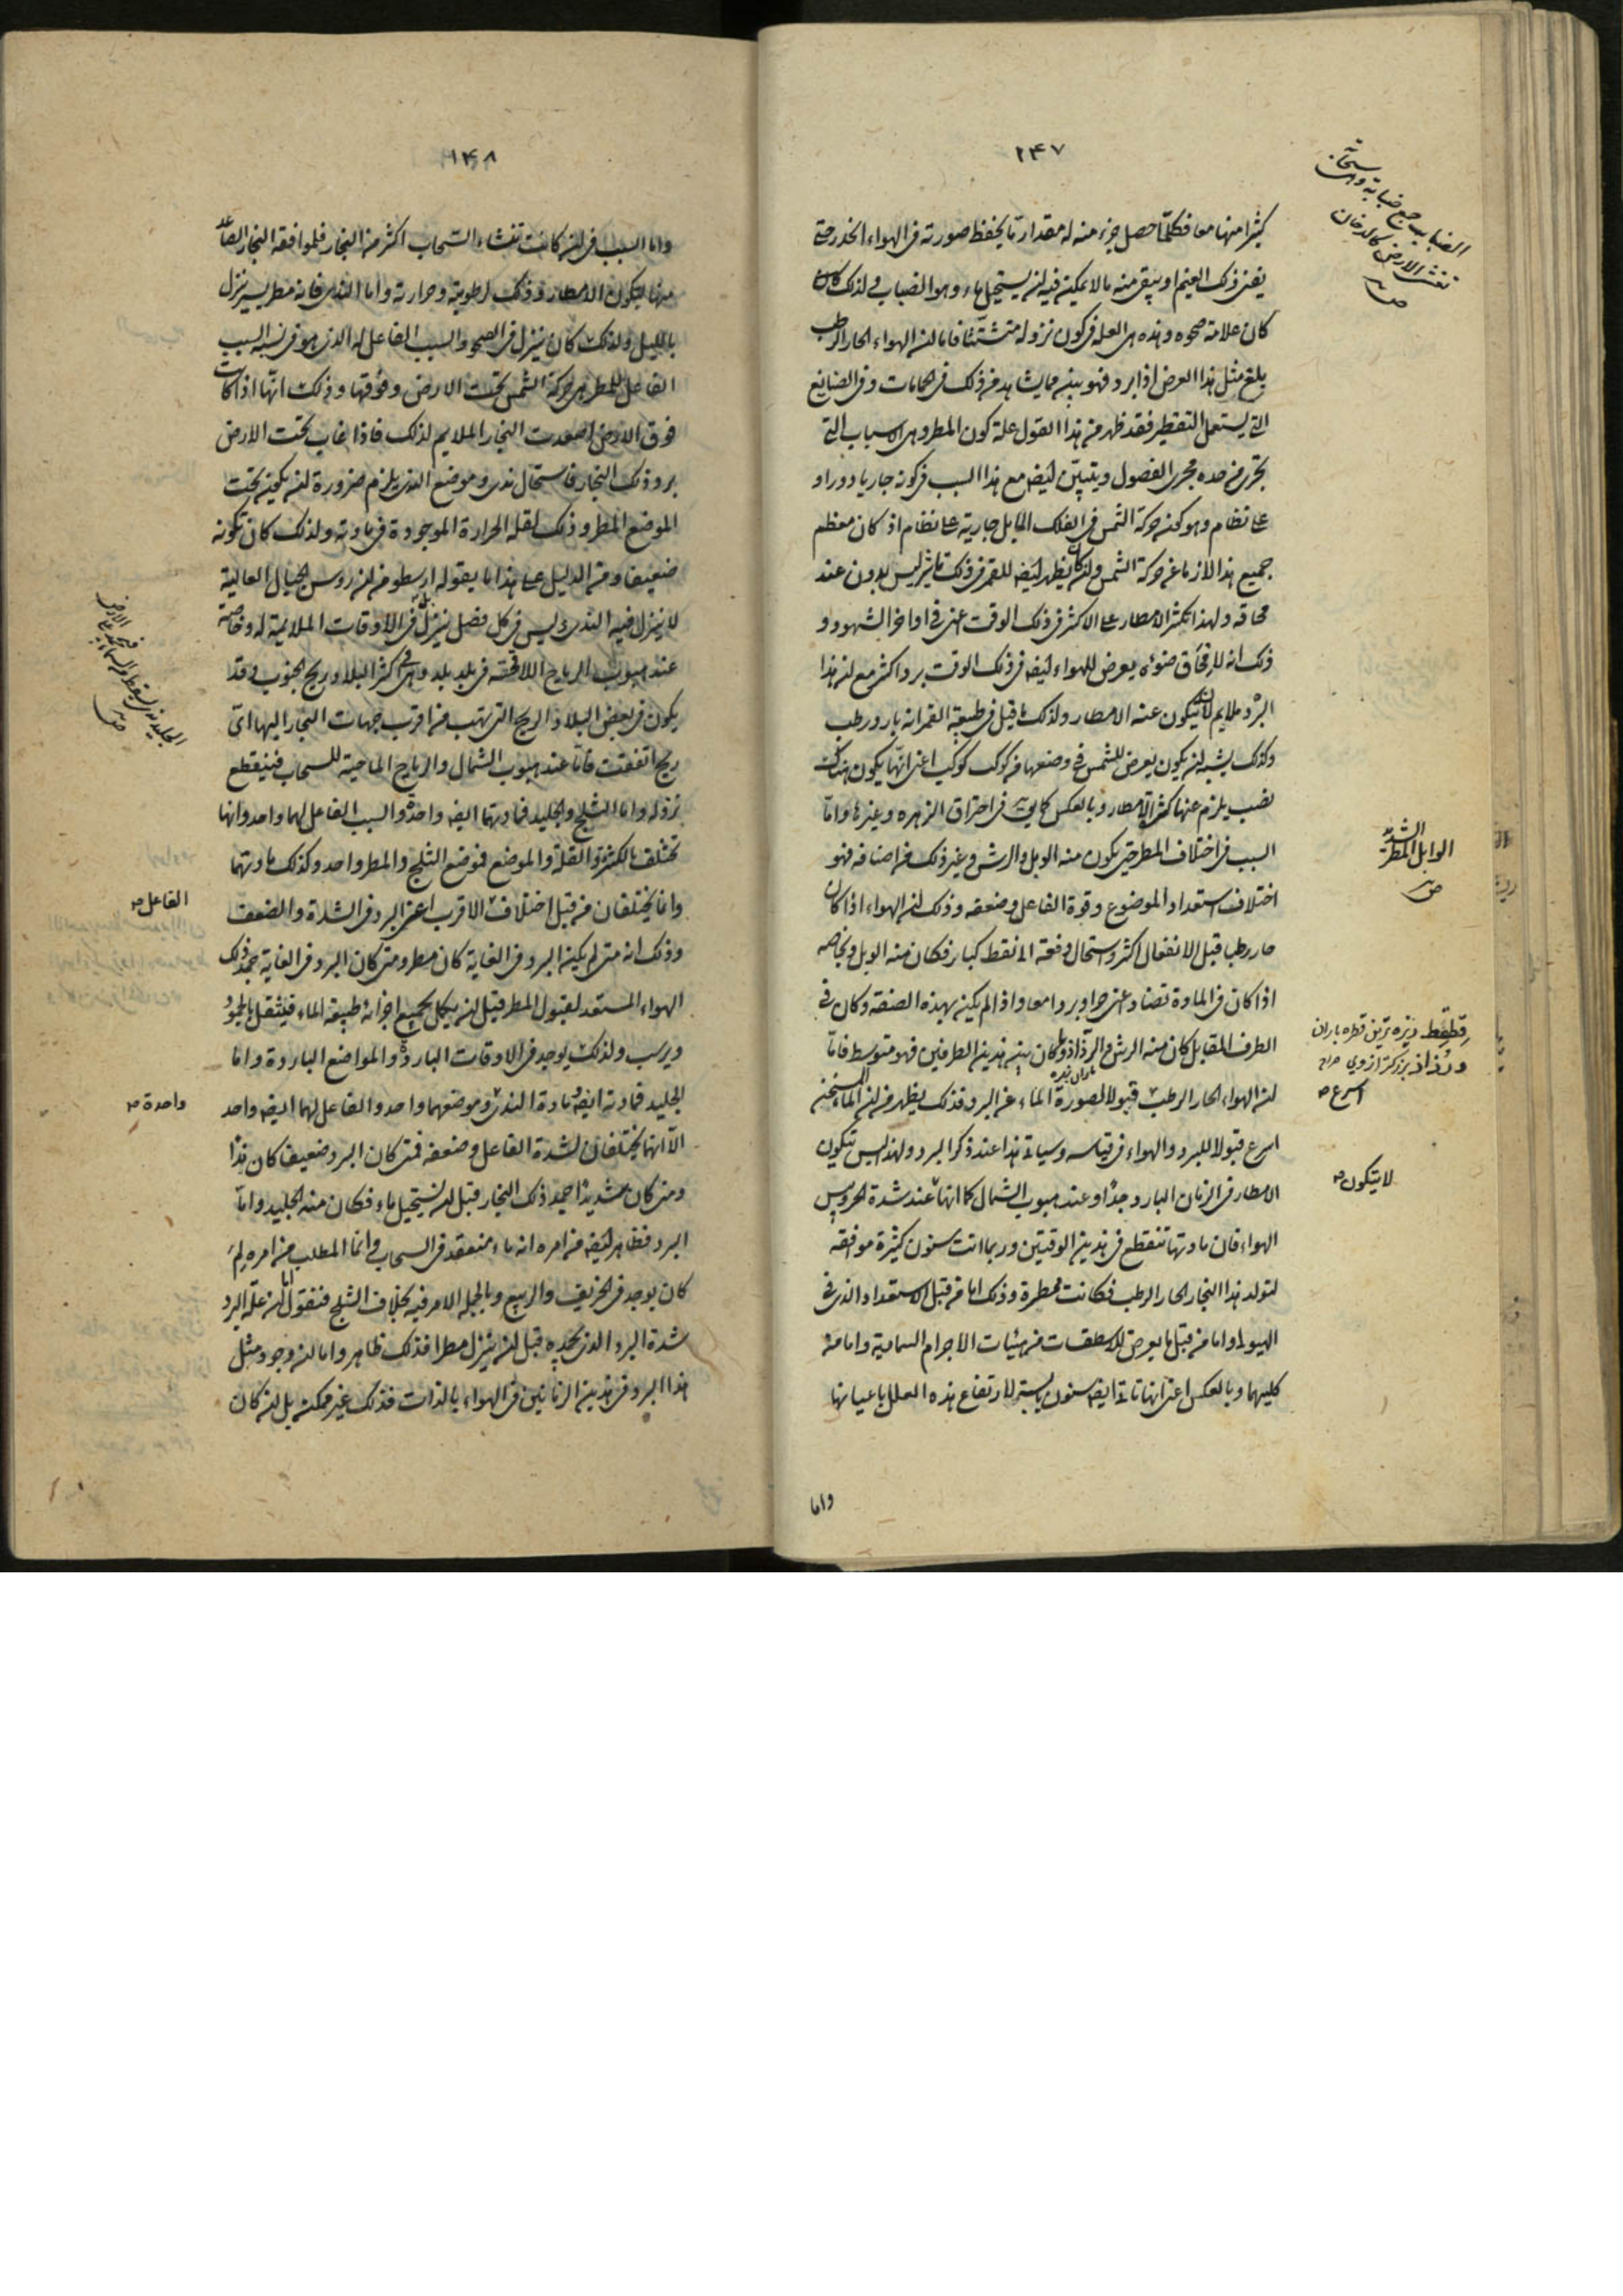 ١٤٧
كثيرا منها معا فكلما حصل جزء منه له مقدار ما يحفظ صورته في الهواء انحدر حتى
يفنى ذلك الغيم او يبقى منه ما لا يمكن فيه ان يستحيل ماء وهو الضباب ولذلك
كان علامة صحوه وهذه هي العلة في كون نزوله متشتتا فاما ان الهواء الحار الرطب
يلزم مثل هذا العرض اذا برد فهو بين مما يشاهد من ذلك في الحمامات وفي الصنايع
التي يستعمل التقطير فقد ظهر من هذا القول علة كون المطر وهي الاسباب التي
تجرى من حده مجرى الفصول ويتبين ايضا مع هذا السبب في كونه جاريا دورا و
على نظام وهو كون حركة الشمس في الفلك المايل جارية على نظام اذ كان معظم
جميع هذا لازما عن حركة الشمس وان كان يظهر ايضا للقمر في ذلك تاثير ليس بدون عند
محاقه ولهذا تكثر الامطار على الاكثر في ذلك الوقت اعنى في اواخر الشهور و
ذلك انه لامحاق ضوئه يعرض للهواء ايضا في ذلك الوقت برد اكثر مع ان هذا
البرد ملايم لان يتكون عنه الامطار ولذلك ما قيل في طبيعة القمر انه بارد رطب
وكذلك يشبه ان يكون يعرض للشمس في وضعها من كوكب كوكب اعنى انها يكون هناك
نصب يلزم عنها كثرة الامطار وبالعكس كما يرى في احتراق الزهره وغيرها واما
السبب في اختلاف المطر حتى يكون منه الوبل والرش وغير ذلك من اصنافه فهو
اختلاف استعداد الموضوع وقوة الفاعل وضعفه وذلك ان الهواء اذا كان
حار رطب قبل الانفعال اكثر واستحال دفعة الى نقط كبار فكان منه الوبل وبخاصه
اذا كان في المادة تضاد اعنى حرا وبردا معا واذا لم يكن بهذه الصفة وكان في
الطرف المقابل كان منه الرش والرذاذ وما كان بين هذين الطرفين فهو متوسط فاما
ان الهواء الحار الرطب قبولا لصورة الماء عن البرد فذلك يظهر من ان الماء المسخن
اسرع قبولا للبرد والهواء في قياسه وسياتى هذا عند ذكر البرد ولهذا ليس تتكون
الامطار في الزمان البارد جدا وعند هبوب الشمال كما انها عند شدة الحر ويبس
الهواء فان مادتها تنقطع في هذين الوقتين وربما اتت سنون كثيرة موافقه
لتولد هذا البخار الحار الرطب فكانت ممطرة وذلك اما من قبل الاستعداد الذي في
الهيولى واما من قبل ما يعرض للاسطقسات من هيئات الاجرام السماوية واما من
كليهما وبالعكس اعنى انها تاتى ايضا سنون يابسة لارتفاع هذه العلل باعيانها
واما
الضباب جمع ضبابة وهى سحابة
تغشى الارض كالدخان
ص
الوابل المطر الشديد
ص
قطقط ريزه ترين قطره باران
ورذاذ بزركتر از وي صراح
باران ريزه
اسرع ص
لا يتكون ص
١٤٨
واما السبب في ان كانت تنشاء السحاب اكثر من البخار فلموافقه البخار الصاعد
منها ليكون الامطار وذلك لرطوبته وحرارته واما الندى فانه مطر يسير ينزل
بالليل ولذلك كان ينزل في الصحو والسبب الفاعل له الذي هو في نسبة السبب
الفاعل للمطر هي حركة الشمس تحت الارض وفوقها وذلك انها اذا كانت
فوق الارض اصعدت البخار الملايم لذلك فاذا غاب تحت الارض
برد ذلك البخار فاستحال ندى وموضع الندى يلزم ضرورة ان يكون تحت
الموضع المطر وذلك لقلة الحرارة الموجودة في مادته ولذلك كان تكونه
ضعيفا ومن الدليل على هذا ما يقوله ارسطو من ان روس الجبال العالية
لا ينزل فيه الندى وليس في كل فصل ينزل بل في الاوقات الملايمة له وخاصة
عند هبوب الرياح اللاقحة في بلد بلد وهى في اكثر البلاد ريح الجنوب وقد
يكون في بعض البلاد الريح التي تهب من اقرب جهات البخار اليها اى
ريح اتفقت فاما عند هبوب الشمال والرياح الماحية للسحاب فينقطع
نزوله واما الثلج والجليد فمادتهما ايضا واحدة والسبب الفاعل لهما واحد وانها
تختلف بالكثرة والقلة والموضع فموضع الثلج والمطر واحد وكذلك مادتهما
وانما يختلفان من قبل اختلاف الاقرب اعنى البرد في الشدة والضعف
وذلك انه متى لم يكن البرد في الغاية كان مطر ومتى كان البرد في الغاية جمد ذلك
الهواء المستعد لقبول المطر قبل ان يكمل بجميع اجزائه طبيعة الماء فيثقل بالجمود
ويرسب ولذلك يوجد في الاوقات الباردة والمواضع الباردة واما
الجليد فمادته ايضا مادة الندى وموضعهما واحد والفاعل لهما ايضا واحد
الا انهما يختلفان لشدة الفاعل وضعفه فمتى كان البرد ضعيفا كان ندا
ومتى كان شديدا جمد ذلك البخار قبل ان يستحيل ماء فكان منه الجليد واما
البرد فظاهر ايضا من امره انه ماء منعقد في السحاب وانما المطلب من امره لم
كان يوجد في الخريف والربيع وبالجملة الامر فيه بخلاف الثلج فنقول اما ان علة البرد
شدة البرد الذي يجمده قبل ان ينزل مطرا فذلك ظاهر واما ان وجود مثل
هذا البرد في هذين الزمانين في الهواء بالذات فذلك غير ممكن بل ان كان
الفاعل ص
واحدة ص